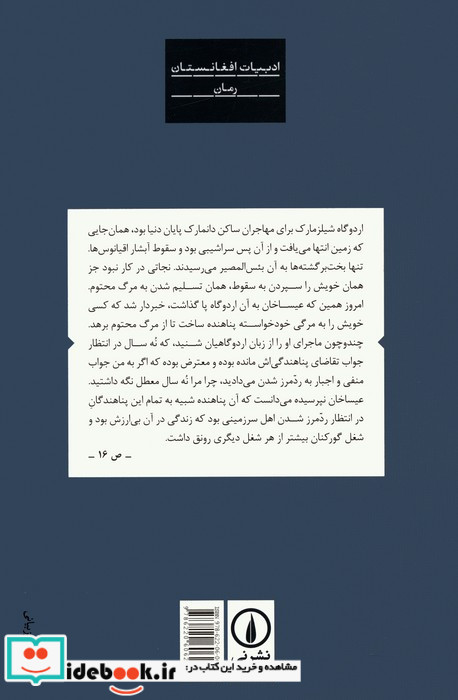 ادبیات افغانستان
رمان
اردوگاه شیلزمارک برای مهاجران ساکن دانمارک پایان دنیا بود، همان‌جایی
که زمین انتها می‌یافت و از آن پس سراشیبی بود و سقوط آبشار اقیانوس‌ها.
تنها بخت‌برگشته‌ها به آن بئس‌المصیر می‌رسیدند. نجاتی در کار نبود جز
همان خویش را سپردن به سقوط، همان تسلیم شدن به مرگ محتوم.
امروز همین که عیساخان به آن اردوگاه پا گذاشت، خبردار شد که کسی
خویش را به مرگی خودخواسته پناهنده ساخت تا از مرگ محتوم برهد.
چندوچون ماجرای او را از زبان اردوگاهیان شنید، که نُه سال در انتظار
جواب تقاضای پناهندگی‌اش مانده بوده و معترض بوده که اگر به من جواب
منفی و اجبار به ردّمرز شدن می‌دادید، چرا مرا نُه سال معطل نگه داشتید.
عیساخان نپرسیده می‌دانست که آن پناهنده شبیه به تمام این پناهندگانِ
در انتظار ردّمرز شدن اهل سرزمینی بود که زندگی در آن بی‌ارزش بود و
شغل گورکنان بیشتر از هر شغل دیگری رونق داشت.
_ ص ۱۶ _
نشر نی
مشاهده و خرید این کتاب در:
idebook.ir